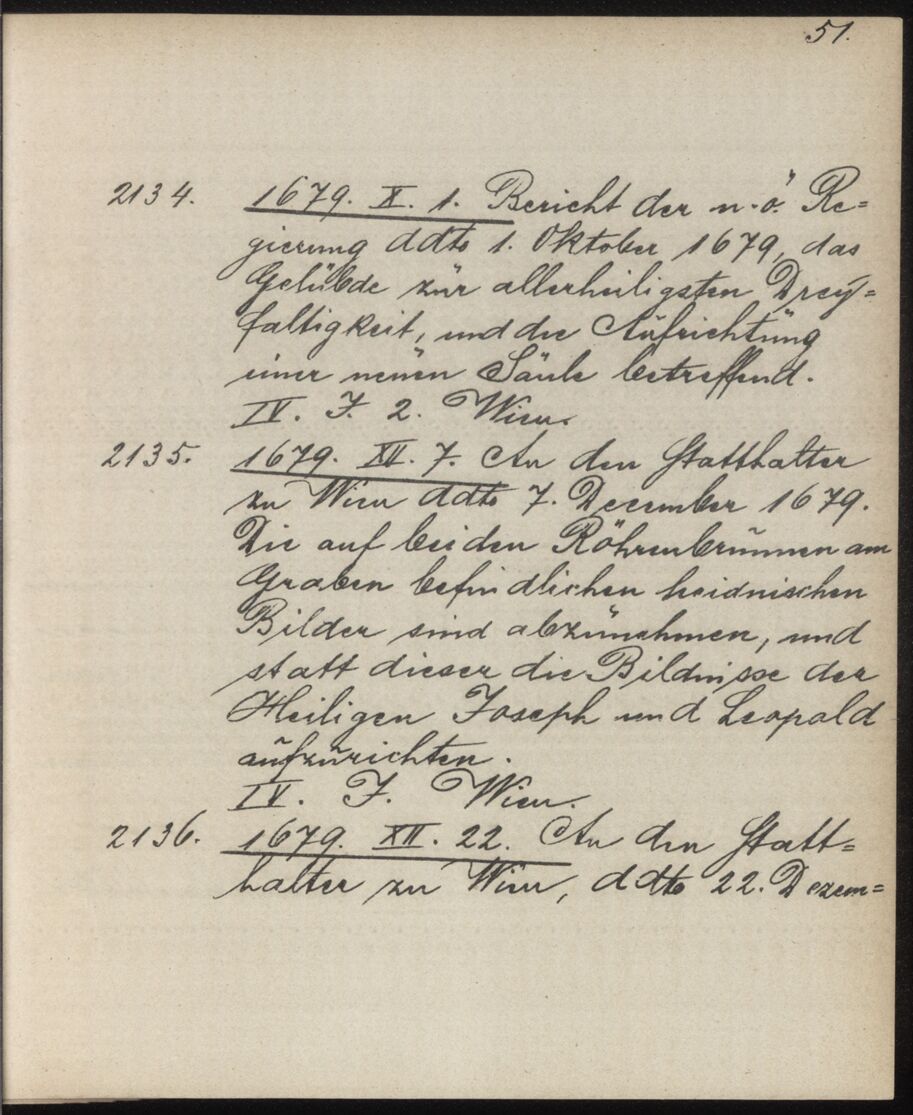 51.
2134. 1679. X. 1. Bericht der n.ö. Re=
gierung ddto 1. Oktober 1679, das
Gelübde zur allerheiligsten Drey=
faltigkeit, und die Aufrichtung
einer neuen Säule betreffend.
IV. F. 2. Wien.
2135. 1679. XII. 7. An den Statthalter
zu Wien ddto 7. December 1679.
Die auf beiden Röhrenbrunnen am
Graben befindlichen heidnischen
Bilder sind abzunehmen, und
statt dieser die Bildnisse der
Heiligen Joseph und Leopold
aufzurichten.
IV. F. Wien.
2136. 1679. XII. 22. An den Statt=
halter zu Wien, ddto 22. Dezem=